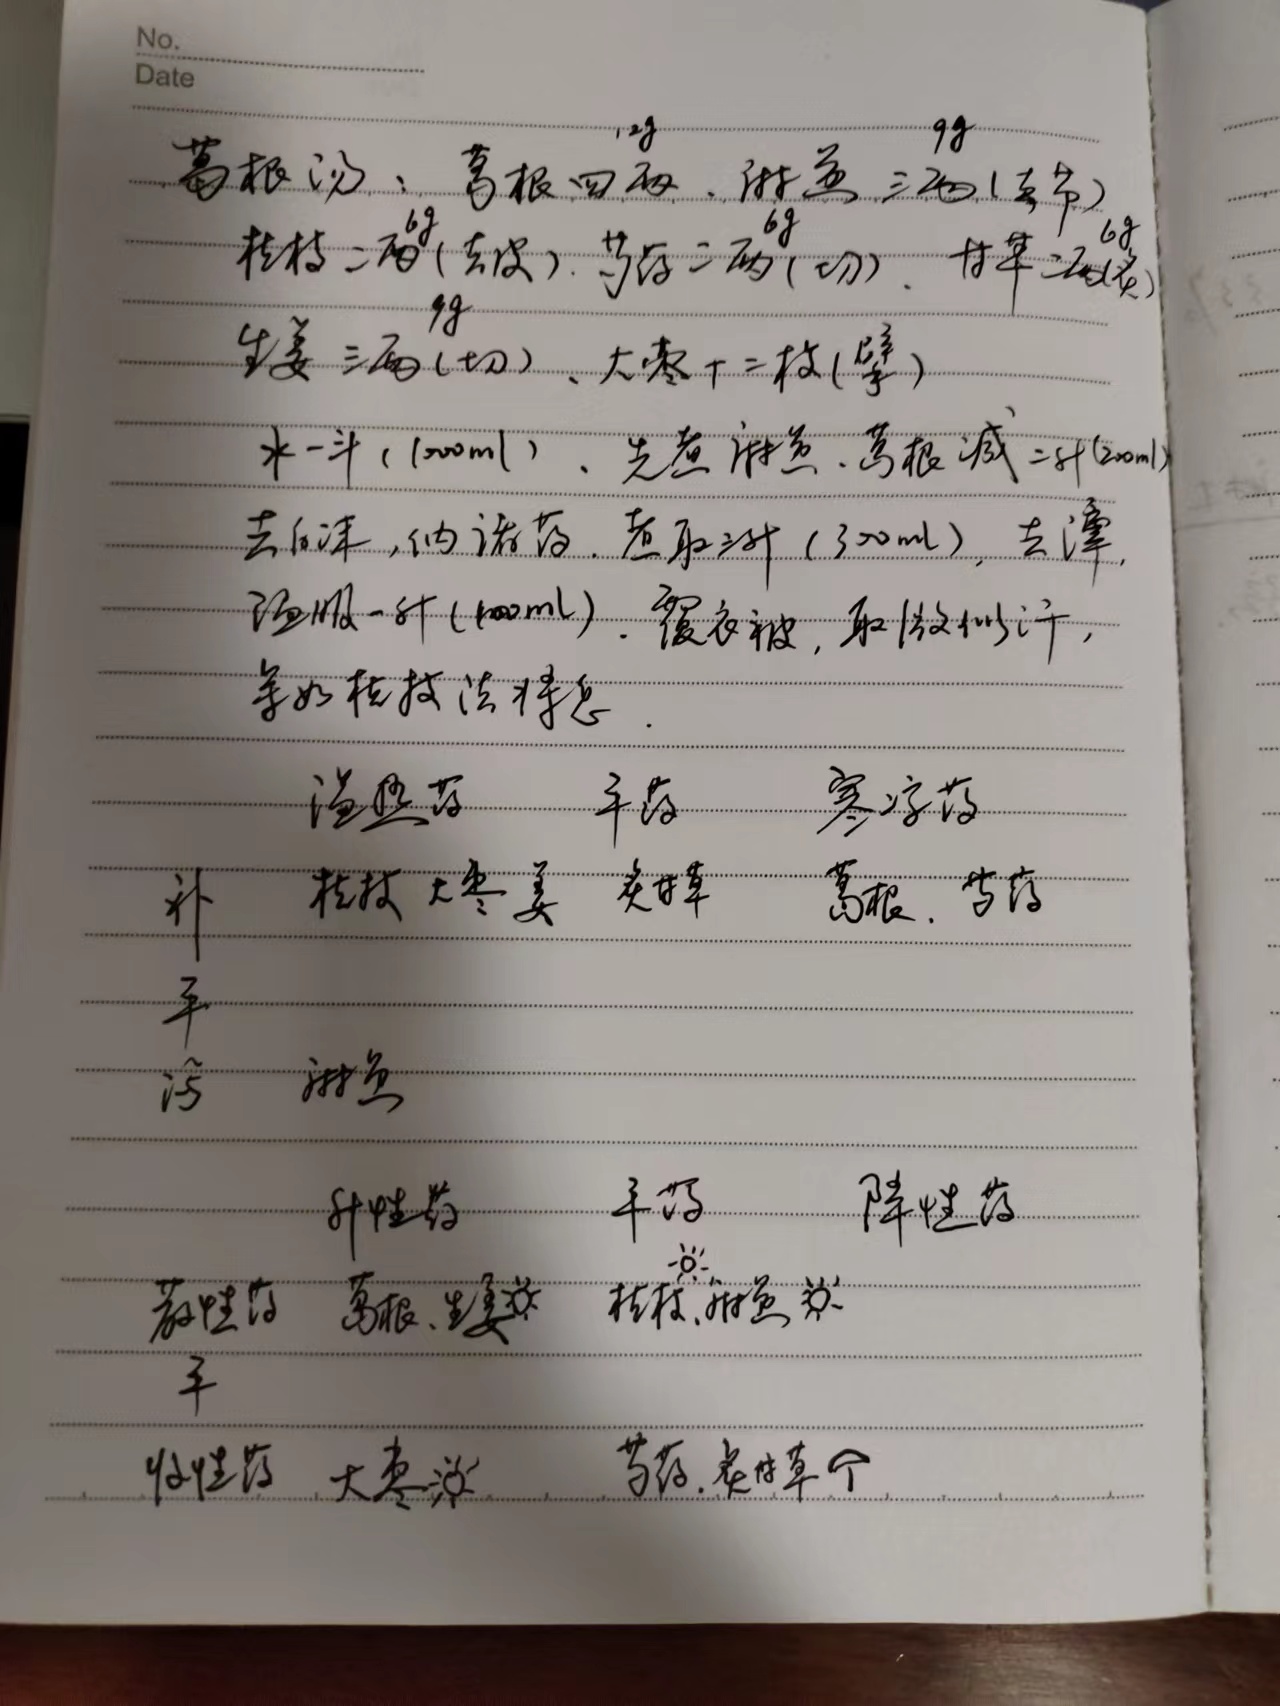 No.
Date
12g 9g
葛根汤：葛根四两、麻黄三两(去节)
6g 6g 6g
桂枝二两(去皮)、芍药二两(切)、甘草二两(炙)
9g
生姜三两(切)、大枣十二枚(擘)
水一斗(1000ml)、先煮麻黄、葛根减二升(200ml)
去白沫,纳诸药、煮取三升(300ml),去滓,
温服一升(100ml)、覆衣被,取微似汗,
余如桂枝法将息.
温热药 平药 寒凉药
补 桂枝 大枣 姜 炙甘草 葛根、芍药
平
泻 麻黄
升性药 平药 降性药
散性药 葛根、生姜 桂枝、麻黄
平
收性药 大枣 芍药、炙甘草个